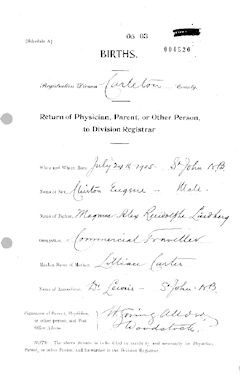 [Schedule A]
06 03
004520
BIRTHS.
Registration Division Carleton County.
Return of Physician, Parent, or Other Person,
to Division Registrar
When and Where Born July 24th 1905 St John N.B.
Name and Sex Clinton Eugene - Male
Name of Father Magnus Alex Rudolphe Lindberg
Occupation Commercial Traveller
Maiden Name of Mother Lillian Carter
Name of Accoucheur Dr Lewin - St John N.B.
Signature of Parent, Physician,
or other person, and Post
Office Address
Woodstock
NOTE. The above Return to be filled in carefully and accurately by Physician,
Parent, or other Person and forwarded to the Division Registrar.